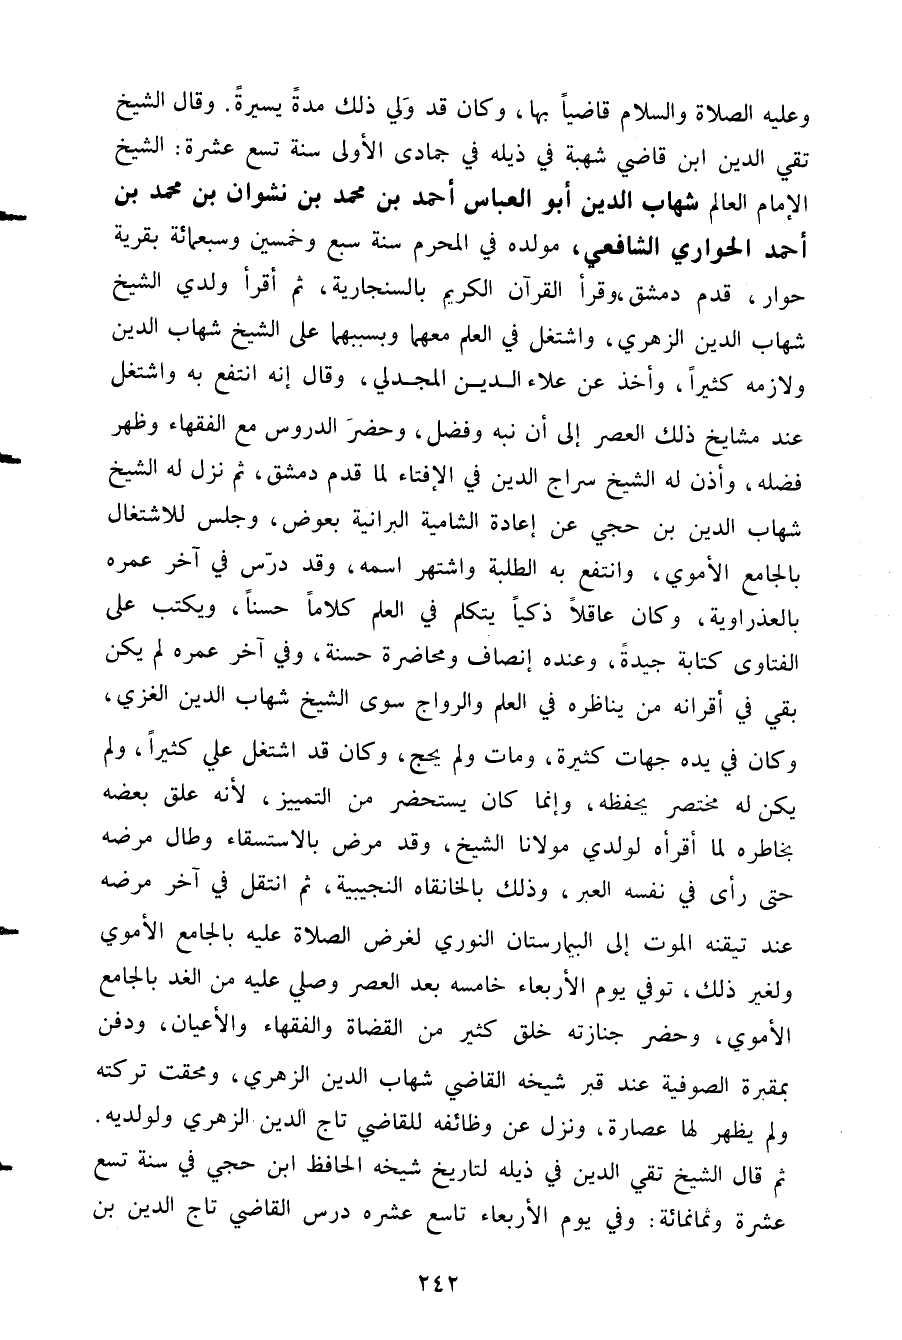 وعليه الصلاة والسلام قاضياً بها، وكان قد وَلي ذلك مدةً يسيرةً. وقال الشيخ
تقي الدين ابن قاضي شهبة في ذيله في جمادى الأولى سنة تسع عشرة: الشيخ
الإمام العالم شهاب الدين أبو العباس أحمد بن محمد بن نشوان بن محمد بن
أحمد الحواري الشافعي، مولده في المحرم سنة سبع وخمسين وسبعمائة بقرية
حوار، قدم دمشق،وقرأ القرآن الكريم بالسنجارية، ثم أقرأ ولدي الشيخ
شهاب الدين الزهري، واشتغل في العلم معهما وبسببهما على الشيخ شهاب الدين
ولازمه كثيراً، وأخذ عن علاء الديـن المجدلي، وقال إنه انتفع به واشتغل
عند مشايخ ذلك العصر إلى أن نبه وفضل، وحضرَ الدروس مع الفقهاء وظهر
فضله، وأذن له الشيخ سراج الدين في الإفتاء لما قدم دمشق، ثم نزل له الشيخ
شهاب الدين بن حجي عن إعادة الشامية البرانية بعوض، وجلس للاشتغال
بالجامع الأموي، وانتفع به الطلبة واشتهر اسمه، وقد درّس في آخر عمره
بالعذراوية، وكان عاقلاً ذكياً يتكلم في العلم كلاماً حسناً، ويكتب على
الفتاوى كتابة جيدةً، وعنده إنصاف ومحاضرة حسنة، وفي آخر عمره لم يكن
بقي في أقرانه من يناظره في العلم والرواج سوى الشيخ شهاب الدين الغزي،
وكان في يده جهات كثيرة، ومات ولم يحج، وكان قد اشتغل علي كثيراً، ولم
يكن له مختصر يحفظه، وإنما كان يستحضر من التمييز، لأنه علق بعضه
بخاطره لما أقرأه لولدي مولانا الشيخ، وقد مرض بالاستسقاء وطال مرضه
حتى رأى في نفسه العبر، وذلك بالخانقاه النجيبية، ثم انتقل في آخر مرضه
عند تيقنه الموت إلى البيمارستان النوري لغرض الصلاة عليه بالجامع الأموي
ولغير ذلك، توفي يوم الأربعاء خامسه بعد العصر وصلي عليه من الغد بالجامع
الأموي، وحضر جنازته خلق كثير من القضاة والفقهاء والأعيان، ودفن
بمقبرة الصوفية عند قبر شيخه القاضي شهاب الدين الزهري، ومحقت تركته
ولم يظهر لها عصارة، ونزل عن وظائفه للقاضي تاج الدين الزهري ولولديه.
ثم قال الشيخ تقي الدين في ذيله لتاريخ شيخه الحافظ ابن حجي في سنة تسع
عشرة وثمانمائة: وفي يوم الأربعاء تاسع عشره درس القاضي تاج الدين بن
٢٤٢